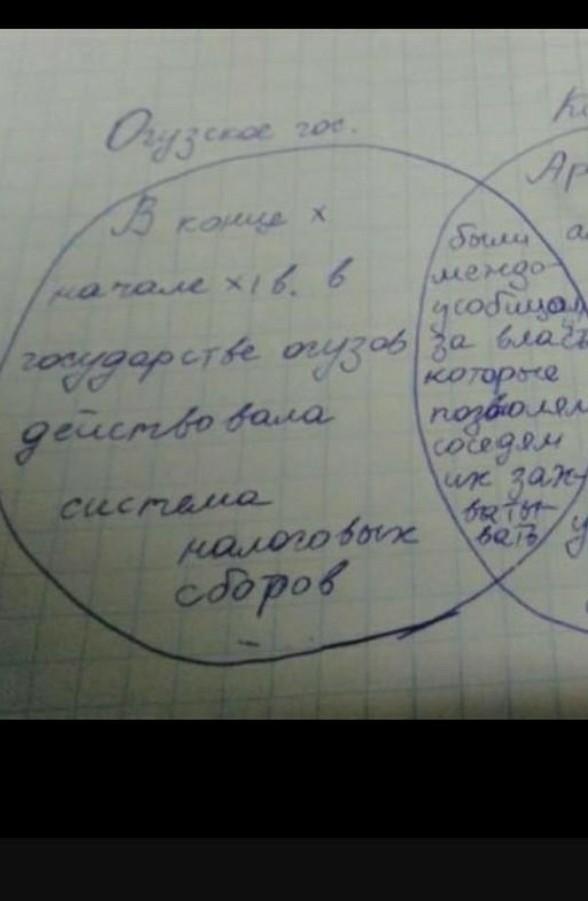 Огузское гос.
В конце х
начале х1 в. в
государстве огузов
действовала
система
налоговых
сборов
были
междо-
усобицы
за власть
которые
соседям
их зах-
ваты-
вать